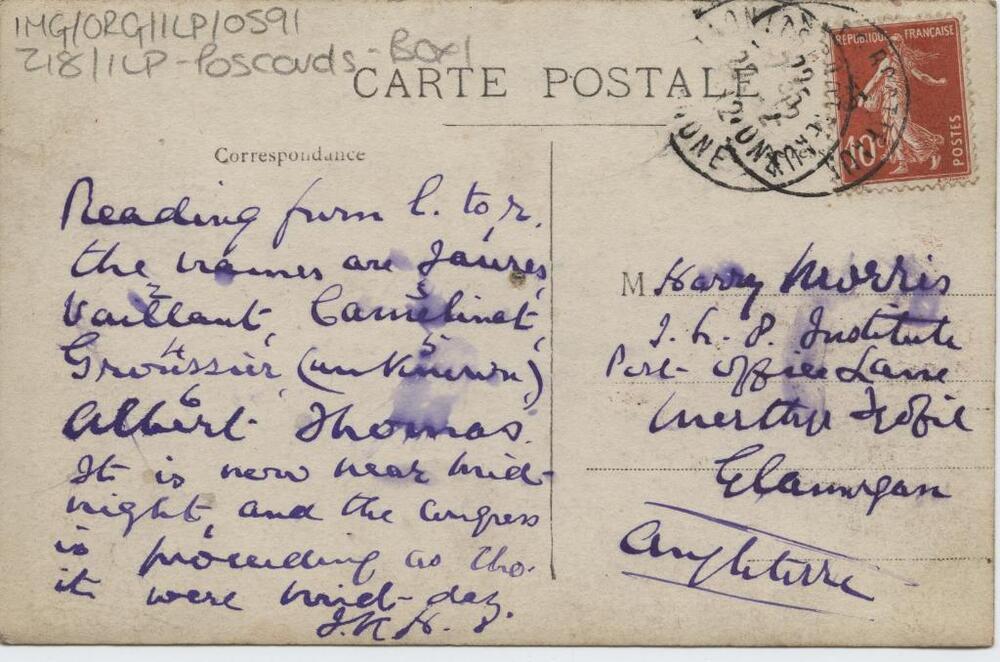 IMG/ORG/ILP/0591
218/ILP-Poscards-Box1
CARTE POSTALE
REPUBLIQUE FRANÇAISE
10c
POSTES
Correspondance
Reading from l. to r.
the names are Jaurès,
2 3
Vaillant, Camélinat,
4 5
Groussier, (unknown)
6
Albert Thomas.
It is now near mid-
night, and the Congress
is proceeding as tho.
it were mid-day.
J.K.H.
M Harry Morris
I. L. P. Institute
Post Office Lane
Merthyr Tydfil
Glamorgan
Angleterre